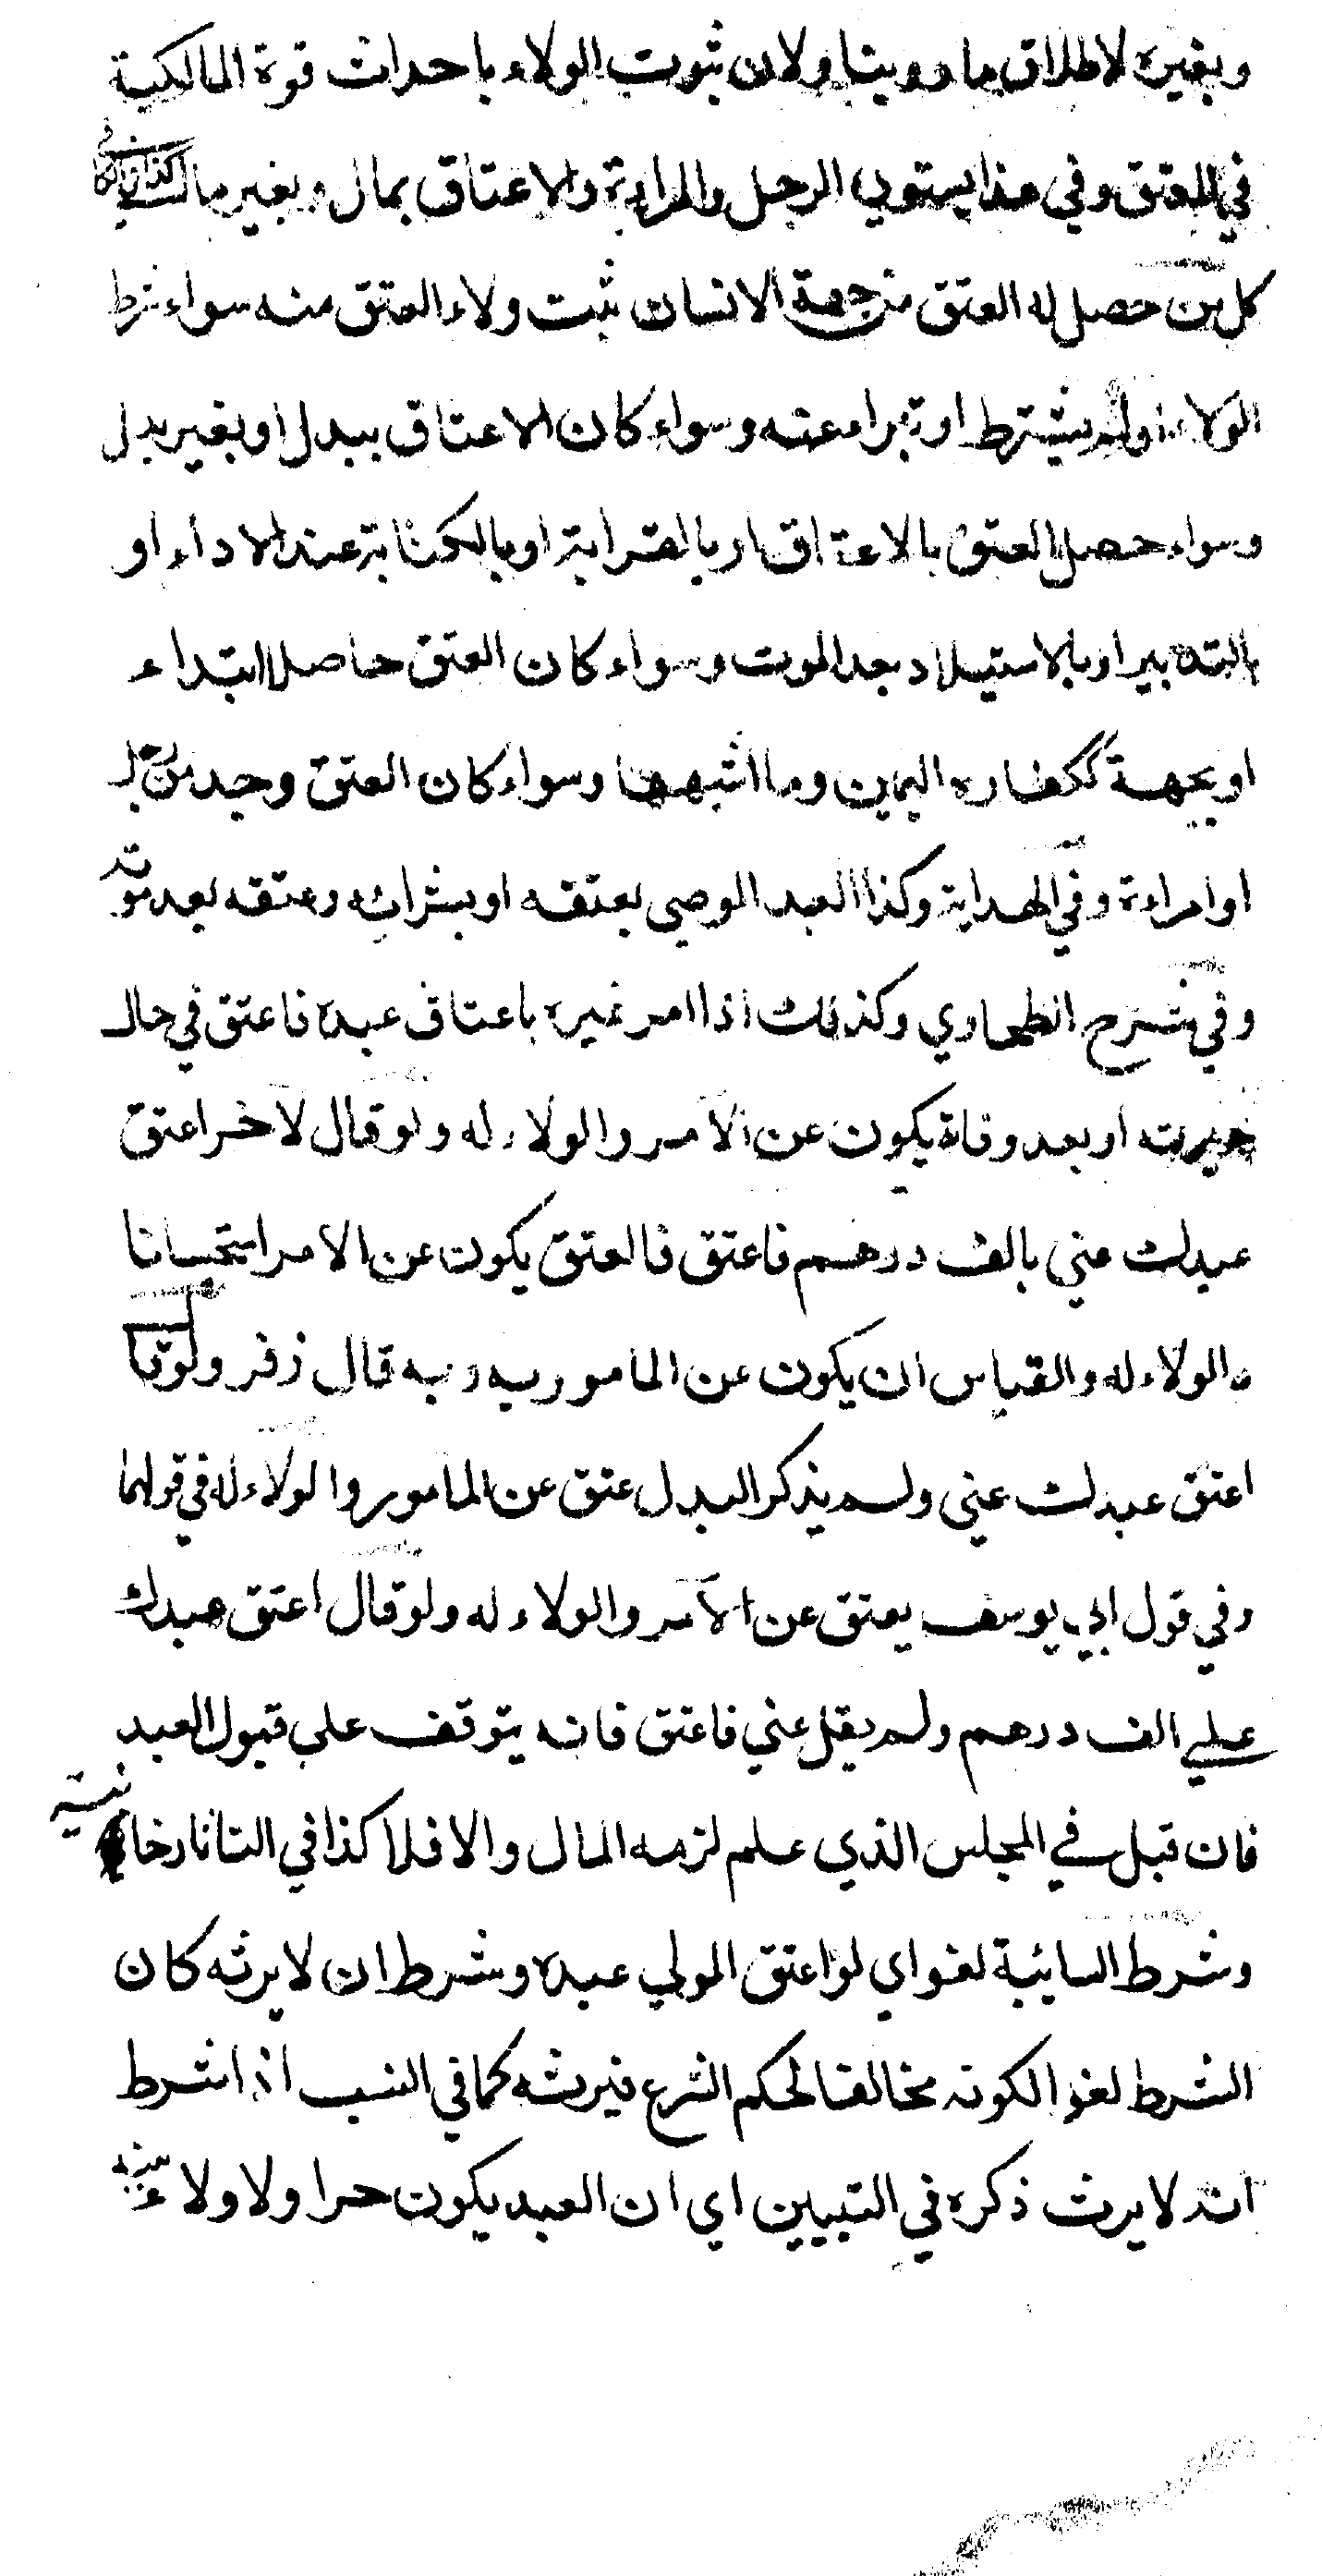 وبغيره لاطلاق ما روينا ولان ثبوت الولاء باحداث قوة المالكية
في المعتق وفي هذا يستوي الرجل والمراءة والاعتاق بمال وبغير مال كذا في
كل من حصل له العتق من جهة الانسان ثبت ولاء العتق منه سواء شرط
الولاء اولم يشترط او تبراء عنه وسواء كان الاعتاق ببدل او بغير بدل
وسواء حصل العتق بالاعتاق او بالقرابة او بالكتابة عند الاداء او
بالتدبير او بالاستيلاد بعد الموت وسواء كان العتق حاصلا ابتداء
او بجهة ككفاره اليمين وما اشبهها وسواء كان العتق وجد من رجل
او امراءة وفي الهداية وكذا العبد الموصي بعتقه او بشرائه وعتقه بعد موته
وفي شرح الطحاوي وكذلك اذا امر غيره باعتاق عبده فاعتق في حال
حيوته او بعد وفاة يكون عن الآمر والولاء له ولو قال لاخر اعتق
عبدك عني بالف درهم فاعتق فالعتق يكون عن الامر استحسانا
والولاء له والقياس ان يكون عن المامور به وبه قال زفر ولو قال
اعتق عبدك عني ولم يذكر البدل عتق عن المامور والولاء له في قولهما
وفي قول ابي يوسف يعتق عن الآمر والولاء له ولو قال اعتق عبدك
علي الف درهم ولم يقل عني فاعتق فانه يتوقف علي قبول العبد
فان قبل في المجلس الذي علم لزمه المال والا فلا كذا في التاتارخانية
وشرط السائبة لغو اي لو اعتق المولي عبده وشرط ان لا يرثه كان
الشرط لغوا لكونه مخالفا لحكم الشرع فيرثه كما في النسب اذا شرط
انه لا يرث ذكره في التبيين اي ان العبد يكون حرا ولا ولاء بينهما